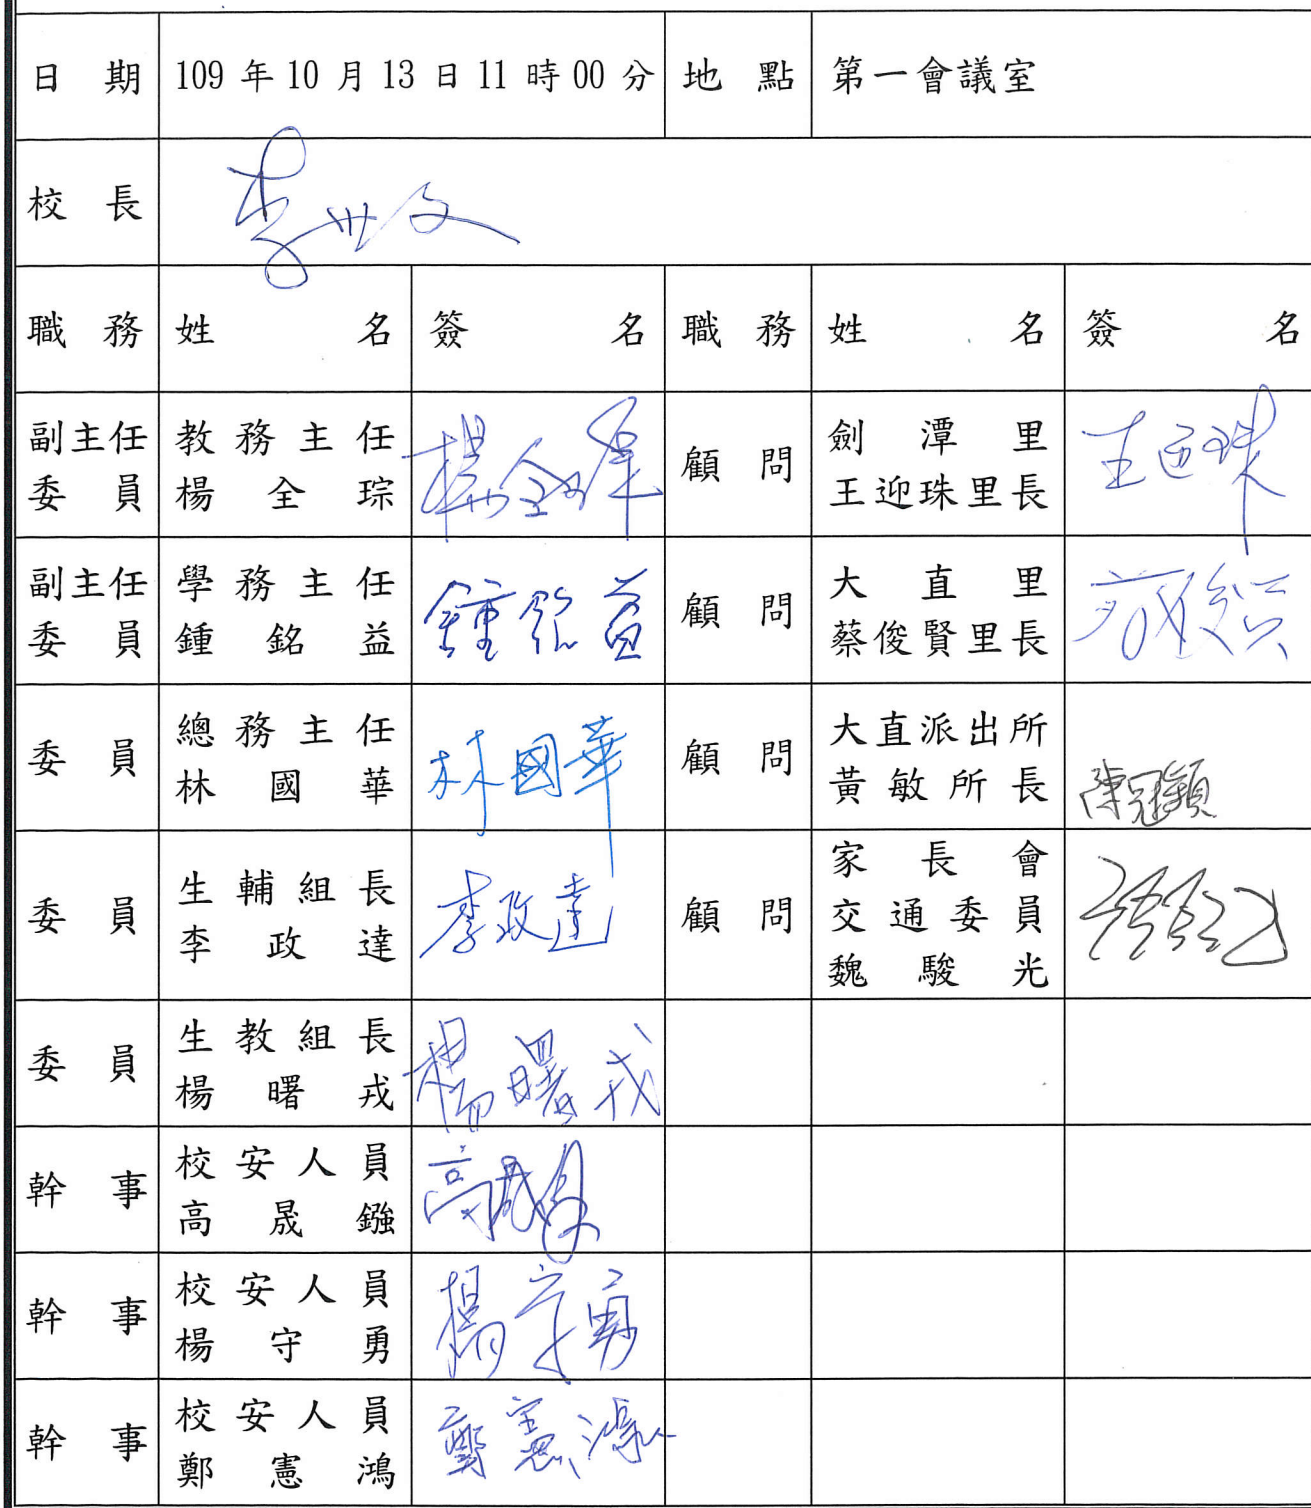 日期 109年10月13日11時00分 地點 第一會議室
校長 李世文
職務 姓名 簽名 職務 姓名 簽名
副主任委員 教務主任 楊全琮 楊全琮 顧問 劍潭里 王迎珠里長 王迎珠
副主任委員 學務主任 鍾銘益 鍾銘益 顧問 大直里 蔡俊賢里長
委員 總務主任 林國華 林國華 顧問 大直派出所 黃敏所長 陳冠穎
委員 生輔組長 李政達 李政達 顧問 家長會 交通委員 魏駿光
委員 生教組長 楊曙戎 楊曙戎
幹事 校安人員 高晟鏹 高晟
幹事 校安人員 楊守勇 楊守勇
幹事 校安人員 鄭憲鴻 鄭憲鴻